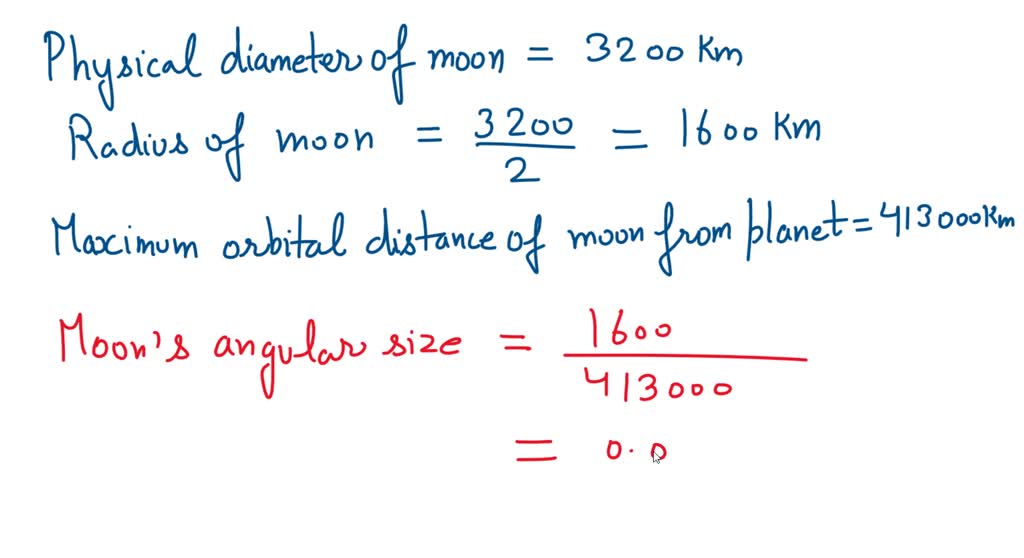 Physical diameter of moon = 3200 Km
Radius of moon = 3200/2 = 1600 Km
Maximum orbital distance of moon from planet = 413000Km
Moon's angular size = 1600/413000
= 0.0